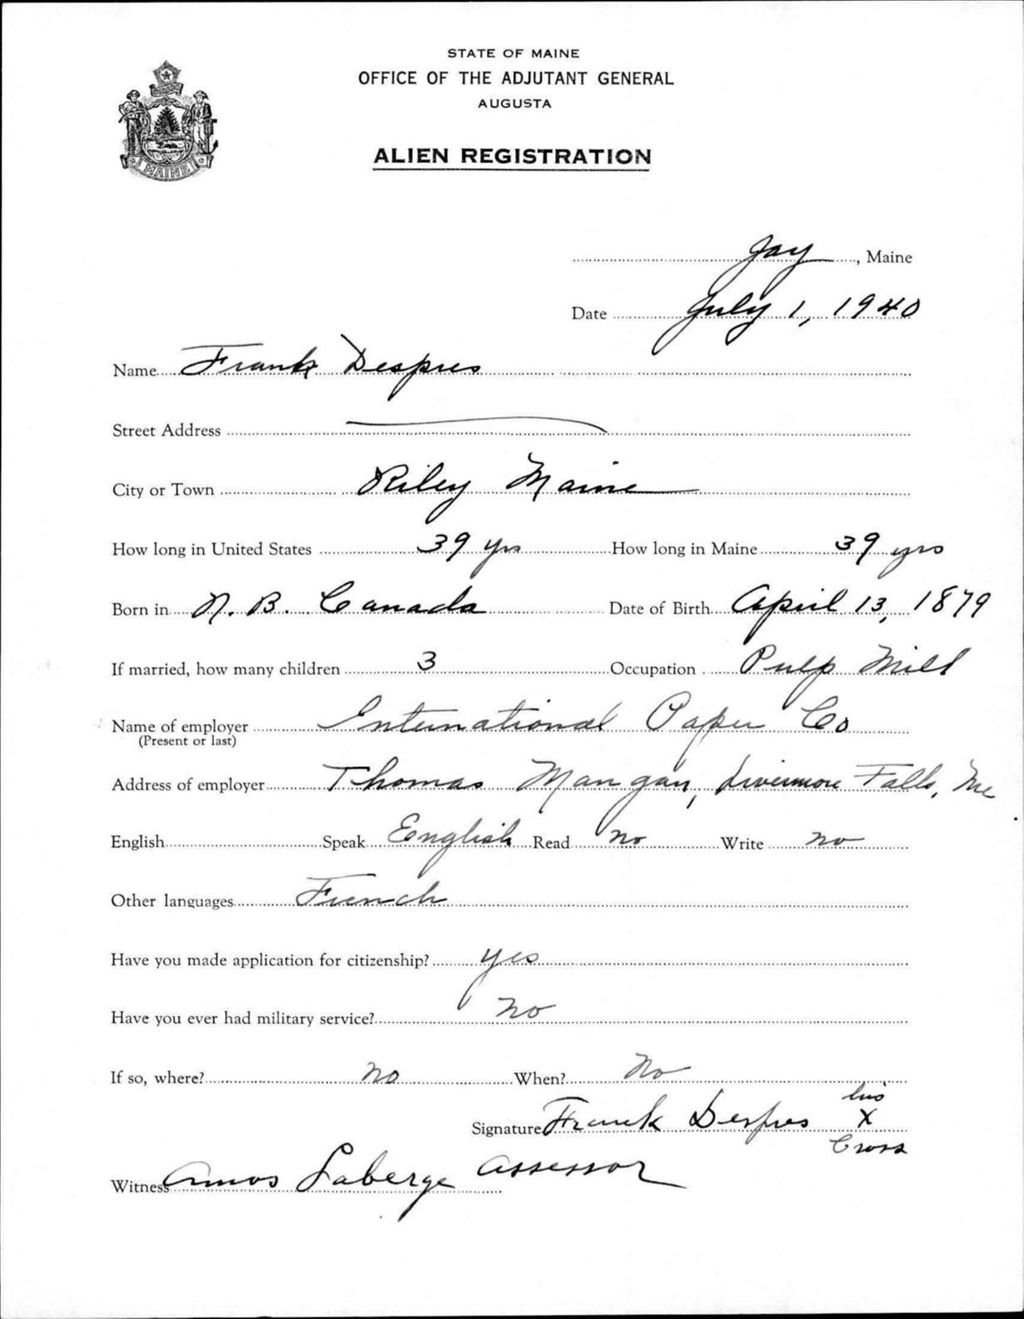 STATE OF MAINE
OFFICE OF THE ADJUTANT GENERAL
AUGUSTA
ALIEN REGISTRATION
MAINE
Jay, Maine
Date July 1, 1940
Name Frank Despres
Street Address
City or Town Riley Maine
How long in United States 39 yrs How long in Maine 39 yrs
Born in N. B. Canada Date of Birth April 13, 1879
If married, how many children 3 Occupation Pulp Mill
Name of employer International Paper Co
(Present or last)
Address of employer Thomas Mangan, Livermore Falls, Me
English Speak English Read no Write no
Other languages French
Have you made application for citizenship? yes
Have you ever had military service? no
If so, where? no When? No
his
Signature Frank Despres X
Cross
Witness Amos Laberge Assessor